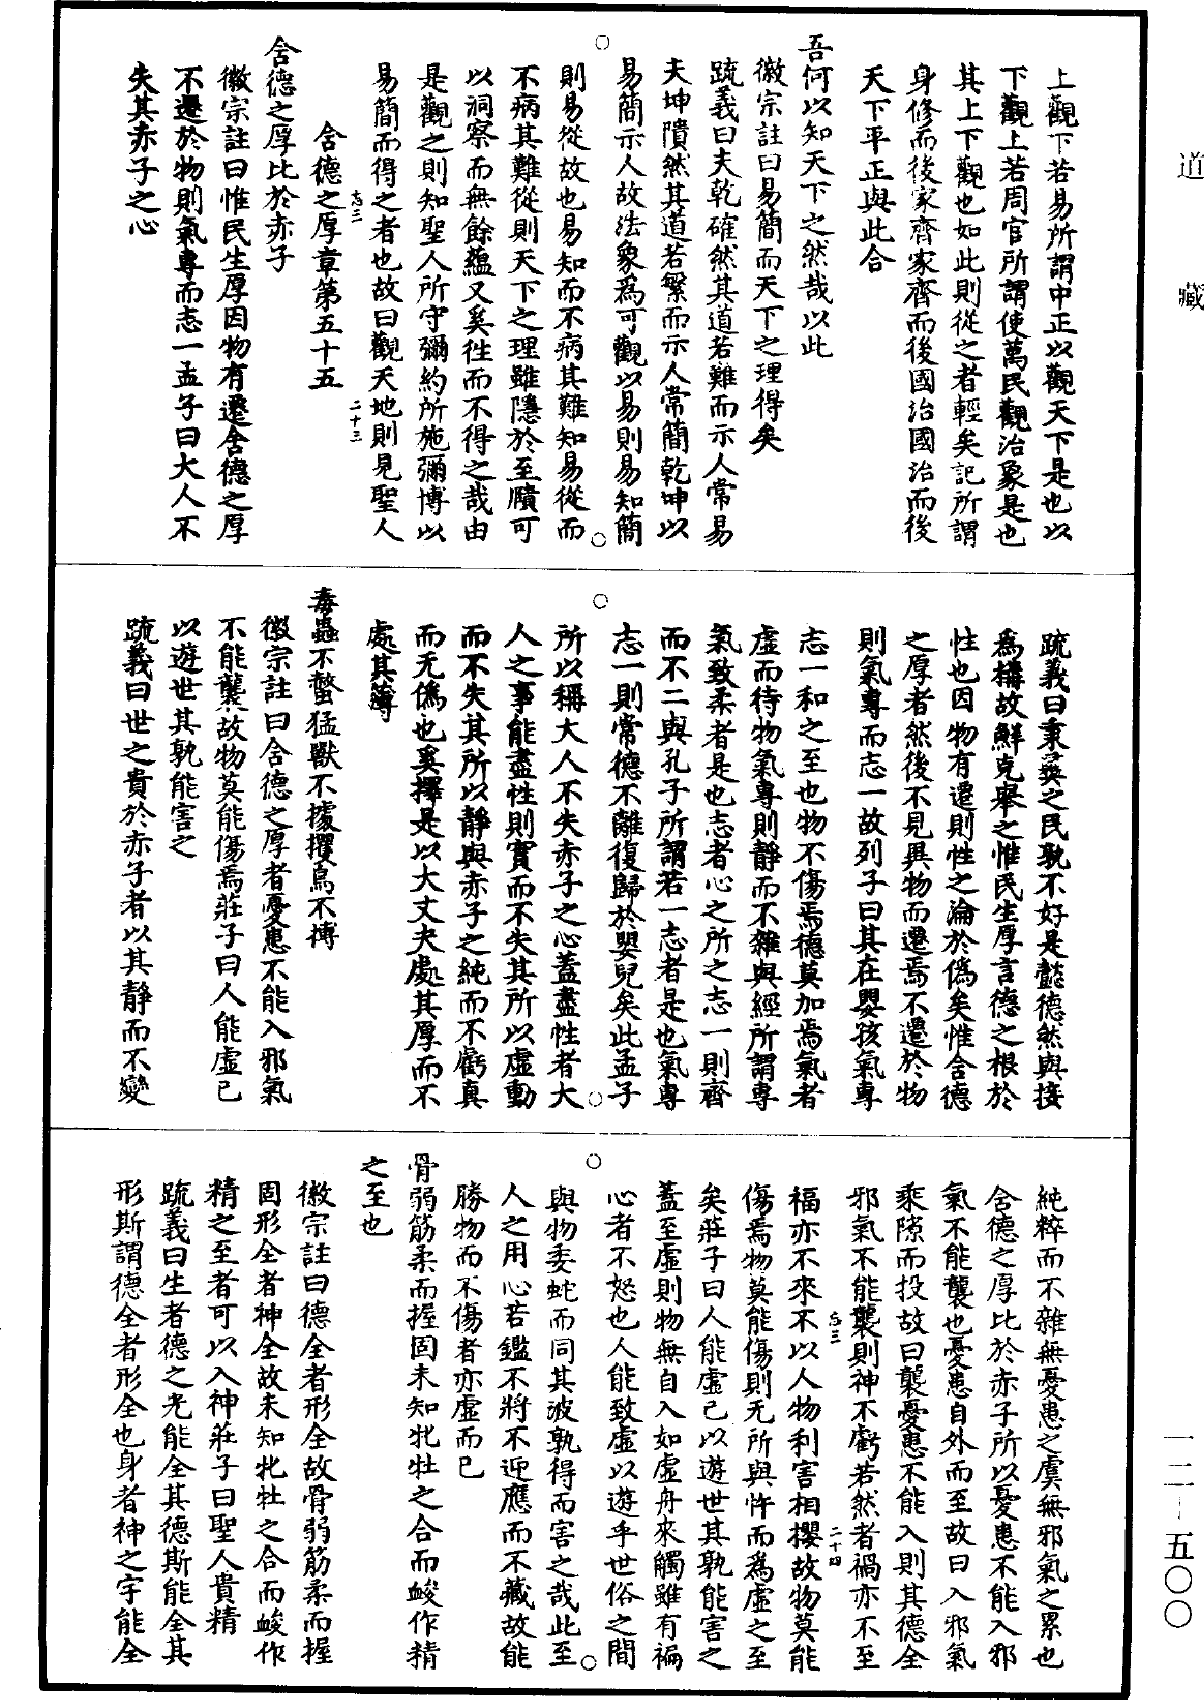 道藏
上觀下若易所謂中正以觀天下是也以
下觀上若周官所謂使萬民觀治象是也
其上下觀也如此則從之者輕矣記所謂
身修而後家齊家齊而後國治國治而後
天下平正與此合
吾何以知天下之然哉以此
徽宗註曰易簡而天下之理得矣
疏義曰夫乾確然其道若難而示人常易
夫坤隤然其道若繁而示人常簡乾坤以
易簡示人故法象爲可觀以易則易知簡
則易從故也易知而不病其難知易從而
不病其難從則天下之理雖隱於至賾可
以洞察而無餘蘊又奚往而不得之哉由
是觀之則知聖人所守彌約所施彌博以
易簡而得之者也故曰觀天地則見聖人
忘三 二十三
含德之厚章第五十五
含德之厚比於赤子
徽宗註曰惟民生厚因物有遷含德之厚
不遷於物則氣專而志一孟子曰大人不
失其赤子之心
疏義曰秉彝之民孰不好是懿德然與接
爲構故鮮克舉之惟民生厚言德之根於
性也因物有遷則性之淪於僞矣惟含德
之厚者然後不見異物而遷焉不遷於物
則氣專而志一故列子曰其在嬰孩氣專
志一和之至也物不傷焉德莫加焉氣者
虛而待物氣專則靜而不雜與經所謂專
氣致柔者是也志者心之所之志一則齊
而不二與孔子所謂若一志者是也氣專
志一則常德不離復歸於嬰兒矣此孟子
所以稱大人不失赤子之心蓋盡性者大
人之事能盡性則實而不失其所以虛動
而不失其所以靜與赤子之純而不虧真
而无僞也奚擇是以大丈夫處其厚而不
處其薄
毒蟲不螫猛獸不據攫鳥不搏
徽宗註曰含德之厚者憂患不能入邪氣
不能襲故物莫能傷焉莊子曰人能虛己
以遊世其孰能害之
疏義曰世之貴於赤子者以其靜而不變
純粹而不雜無憂患之虞無邪氣之累也
含德之厚比於赤子所以憂患不能入邪
氣不能襲也憂患自外而至故曰入邪氣
乘隙而投故曰襲憂患不能入則其德全
邪氣不能襲則神不虧若然者禍亦不至
忘三 二十四
福亦不來不以人物利害相攖故物莫能
傷焉物莫能傷則无所與忤而爲虛之至
矣莊子曰人能虛己以遊世其孰能害之
蓋至虛則物無自入如虛舟來觸雖有褊
心者不怒也人能致虛以遊乎世俗之間
與物委蛇而同其波孰得而害之哉此至
人之用心若鑑不將不迎應而不藏故能
勝物而不傷者亦虛而已
骨弱筋柔而握固未知牝牡之合而峻作精
之至也
徽宗註曰德全者形全故骨弱筋柔而握
固形全者神全故未知牝牡之合而峻作
精之至者可以入神莊子曰聖人貴精
疏義曰生者德之光能全其德斯能全其
形斯謂德全者形全也身者神之宇能全
一二-五〇〇